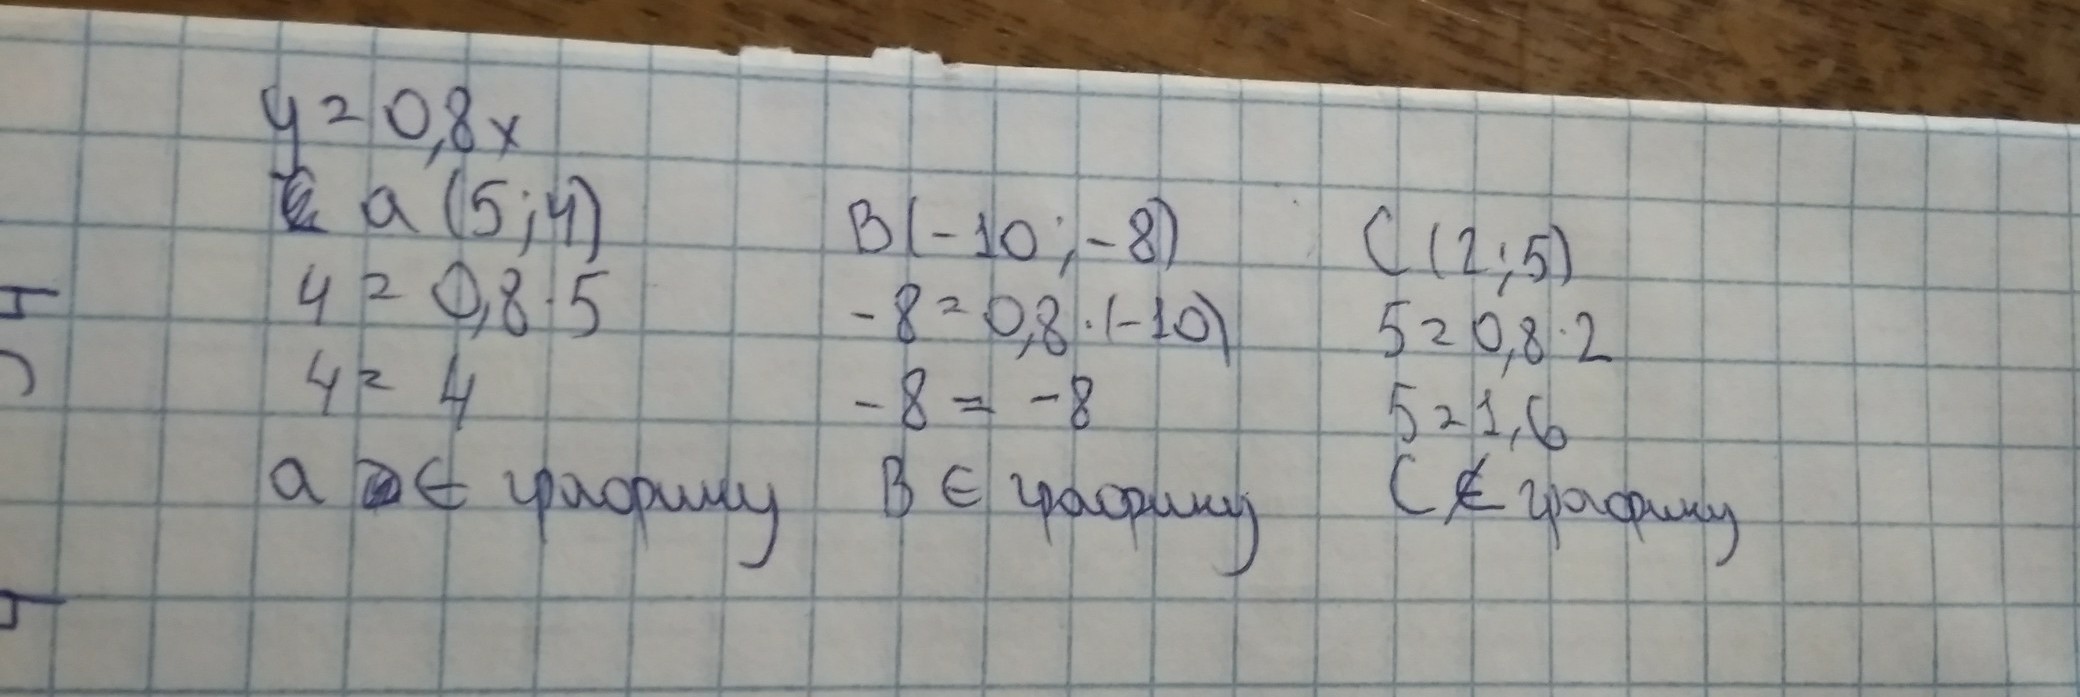 y = 0,8x
a (5;4)
4 = 0,8·5
4 = 4
a ∈ графику
B(-10;-8)
-8 = 0,8·(-10)
-8 = -8
B ∈ графику
C (2;5)
5 = 0,8·2
5 = 1,6
C ∉ графику